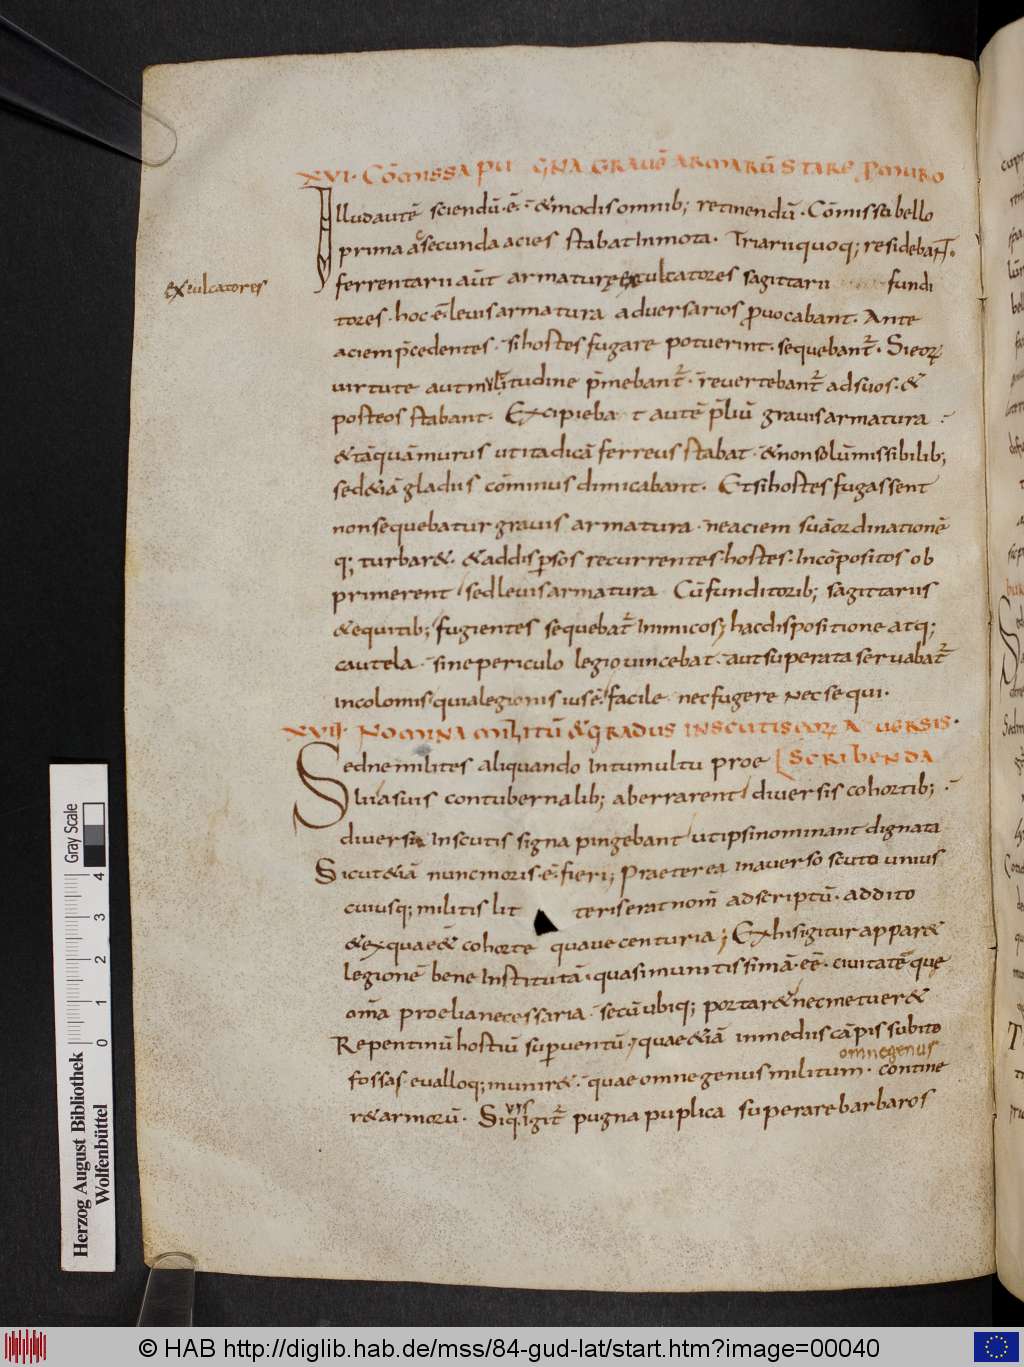 XVI · Cōmissa pu gna gravē armarū stare ꝑ muro
Illud autē sciendū·ē· & modis omnib; retinendū· Cōmisso bello
prima ac secunda acies stabat inmota· Triarii quoq; residebant·
ferrentarii aūt armaturę exculcatores sagittarii fundi
exculcatores
tores· hoc·ē· levis armatura adversarios ꝓvocabant· Ante
aciem p̄cedentes· si hostes fugare potuerint· sequebant᷑· Si eoꝝ
virtute aut multitudine p̄mebant᷑· revertebant᷑ ad suos· &
post eos stabant· Excipieba t autē p̄liū gravis armatura·
& tāquā murus ut ita dicā ferreus stabat· & non solū missibilib;
sed &iā gladiis cōminus dimicabant· Et si hostes fugassent
non sequebatur gravis armatura· ne aciem suā ordinationē
q; turbar&· & ad disꝑsos recurrentes hostes· Incōpositos ob
primerent sed levis armatura Cū funditorib; sagittariis
& equitib; fugientes sequebat᷑ Inimicos; hac dispositione atq;
cautela· sine periculo legio vincebat· aut superata servabat᷑
incolomis quia legionis ius ē· facile nec fugere nec sequi·
XVII· Nomina militū & gradus in scutis eoꝝ a versis·
Sed ne milites aliquando In tumultu proe [scribenda
lii a suis contubernalib; aberrarent diversis cohortib;·
diversa In scutis signa pingebant ut ipsi nominant dignata
Sicut &iā nunc moris·ē· fieri; Praeterea in averso scuto unius
cuiusq; militis lit teris erat nom̄ adscriptū· addito
& ex qua e&̄ cohorte quave centuria; Ex his igitur appar&
legionē bene Institutā· quasi munitissimā·eē· civitatē que
om̄a proelia necessaria· secū ubiq; portar& nec metuer&
Repentinū hostiū suꝑventū, quae &iā in mediis cāpis subito
omnegenus
fossas evalloq; munir&· quae omne genus militum· contine
r& armorū· Siquis igit᷑ pugna puplica superare barbaros
Gray Scale
4
3
2
1
0
Herzog August Bibliothek
Wolfenbüttel
© HAB http://diglib.hab.de/mss/84-gud-lat/start.htm?image=00040